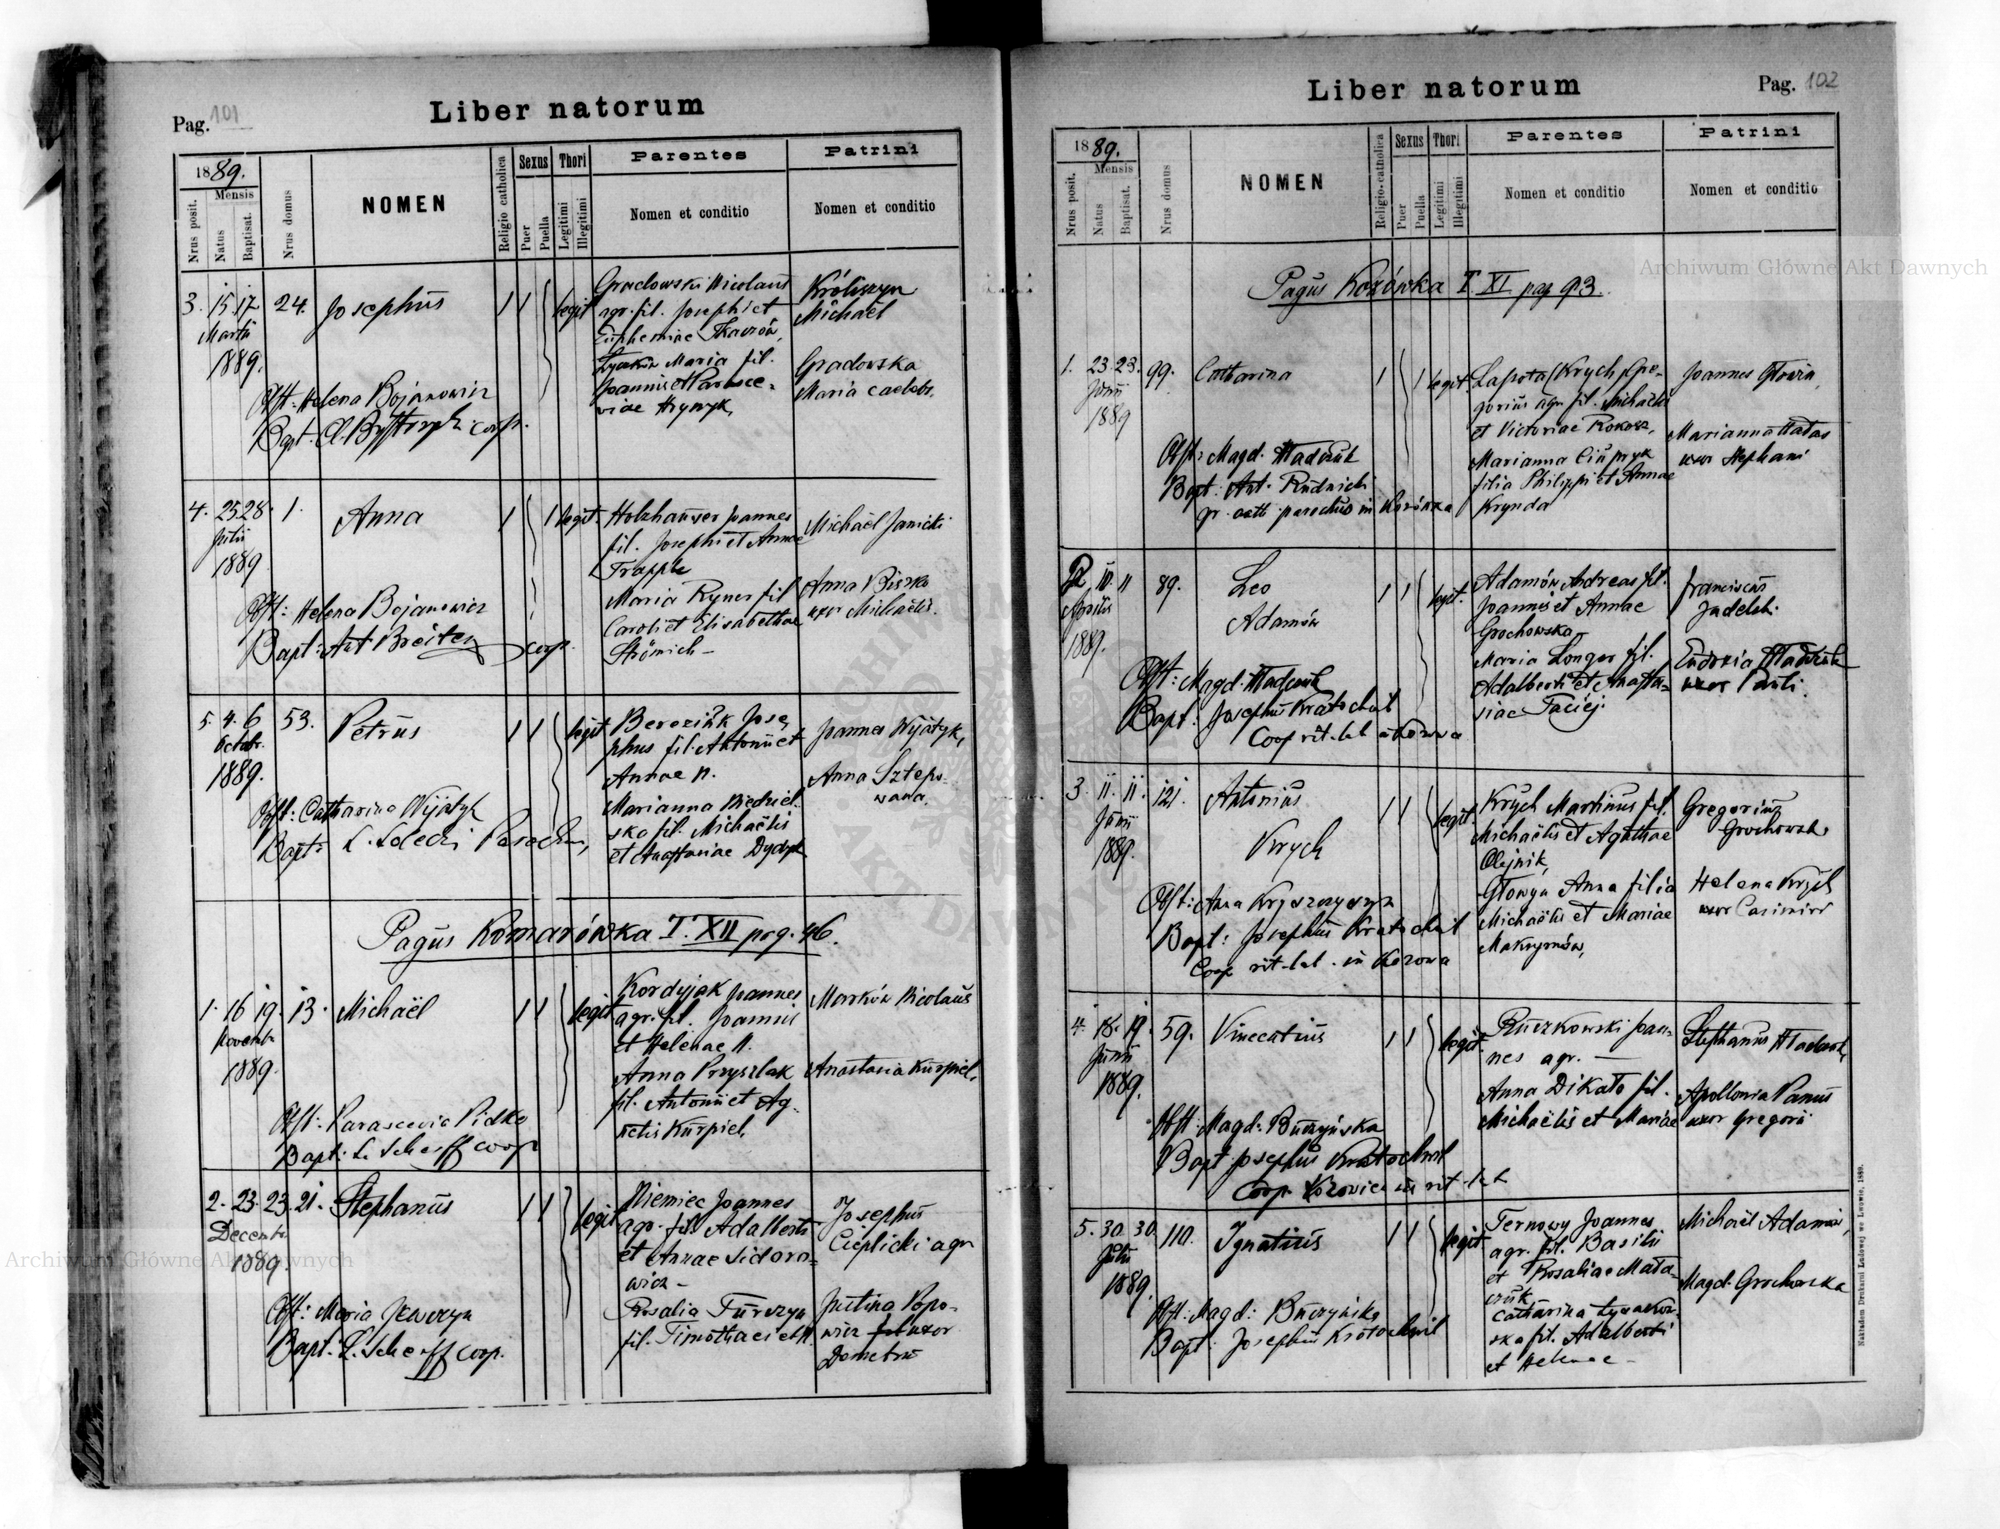 Pag. 101
Liber natorum
1889.
Mensis
Nrus posit.
Natus
Baptisat.
Nrus domus
NOMEN
Religio catholica
Sexus
Puer
Puella
Thori
Legitimi
Illegitimi
Parentes
Nomen et conditio
Patrini
Nomen et conditio
3. 15. 17. 24. Josephus 1 1 legit
Martii
1889.
Gradowski Nicolaus
agr. fil. Josephi et
Euphemiae Tkaczów,
Maria fil.
Joannis et Parasce-
viae Hrynyk
Króliszyn
Michaël
Gradowska
Maria caelebs.
Obst: Helena Bojanowicz
Bapt: coop.
4. 25 28 1. Anna 1 1 legit.
Julii
1889
Holzhauser Joannes
fil. Josephi et Annae
Trappe
Maria Ryner fil
Caroli et Elisabethae
Michaël Janicki
Anna Biszko
uxor Michaëlis.
Obst: Helena Bojanowicz
Bapt: Ant Breiter coop.
5. 4. 6 53. Petrus 1 1 legit
Octobr.
1889.
Berezink Jose
phus fil. Antonii et
Annae N.
Marianna Niedziel
ska fil. Michaëlis
et Anastasiae Dydyk
Joannes Wijatyk,
Anna Sztepo
wana.
Obst: Catharina Wijatyk
Bapt: Parochus,
Pagus Komarówka T. XII pag. 46.
1. 16 19. 13. Michaël 1 1 legit
Novembr
1889.
Kordyjak Joannes
agr. fil. Joannis
et Helenae N.
Anna Przyszlak
fil. Antonii et Ag-
netis Kurpiel,
Marków Nicolaus
Anastasia Kurpiel.
Obst: Parascevia Pidko
Bapt: L. Scherff coop
2. 23. 23. 21. Stephanus 1 1 legit
Decembr
1889.
Niemiec Joannes
agr. fil. Adalberti
et Annae Sidoro-
wicz -
Rosalia Turczyn
fil. Timothaei et N.
Josephus
Cieplicki agr
Justina Popo-
wicz uxor
Demetrii
Obst: Maria
Bapt: L. Scherff coop.
Pag. 102
Liber natorum
1889.
Mensis
Nrus posit.
Natus
Baptisat.
Nrus domus
NOMEN
Religio-catholica
Sexus
Puer
Puella
Thori
Legitimi
Illegitimi
Parentes
Nomen et conditio
Patrini
Nomen et conditio
Pagus Kozówka T. XI pag 93.
1. 23. 23. 99. Catharina 1 1 legit.
Junii
1889
Lapota (Krych) Gre-
gorius agr. fil. Michaëlis
et Victoriae Rokosz,
Marianna Ciupryk
filia Philippi et Annae
Krynda
Joannes Głowia,
Marianna
uxor Stephani
Obst: Magd. Hladczuk
Bapt: Ant. Rudnicki
gr. cath parochus in Kozówka
2 10. 11 89. Leo 1 1 legit.
Adamów
Aprilis
1889.
Adamów Andreas fil.
Joannis et Annae
Grochowska
Maria Longer fil.
Adalberti et Anasta-
siae Taciej.
Franciscus
Judelski
Eudoxia Hladczuk
uxor Pauli.
Obst: Magd. Hladczuk
Bapt: Josephus Kratochwil
Coop rit. lat.
3. 11. 11. 121. Antonius 1 1 legit.
Krych
Junii
1889.
Krych Martinus fil.
Michaëlis et Agathae
Olejnik,
Głowyn Anna filia
Michaëlis et Mariae
Makrymów,
Gregorius
Grochowski
Helena Krych
uxor Casimiri
Obst: Anna Kryszczyszyn
Bapt: Josephus Kratochwil
Coop rit. lat. in Kozowa
4. 18. 19. 59. Vincentius 1 1 legit.
Junii
1889.
Ruczkowski Joan-
nes agr. —
Anna Dikało fil.
Michaëlis et Mariae
Stephanus Hladczuk
Apollonia Panus
uxor Gregorii
Obst: Magd: Buczyńska
Bapt Josephus Kratochwil
Coop rit. lat
5. 30. 30. 110. Ignatius 1 1 legit
Julii
1889.
Ternowy Joannes
agr. fil. Basilii
et Rosaliae Mata-
czuk
Catharina Łyzakow
ska fil. Adalberti
et Helenae -
Michaël Adamów,
Magd. Grochowska
Obst: Magd: Buczyńska
Bapt: Josephus Kratochwil
Nakładem Drukarni Ludowej we Lwowie, 1889.
Archiwum Główne Akt Dawnych
Archiwum Główne Akt Dawnych